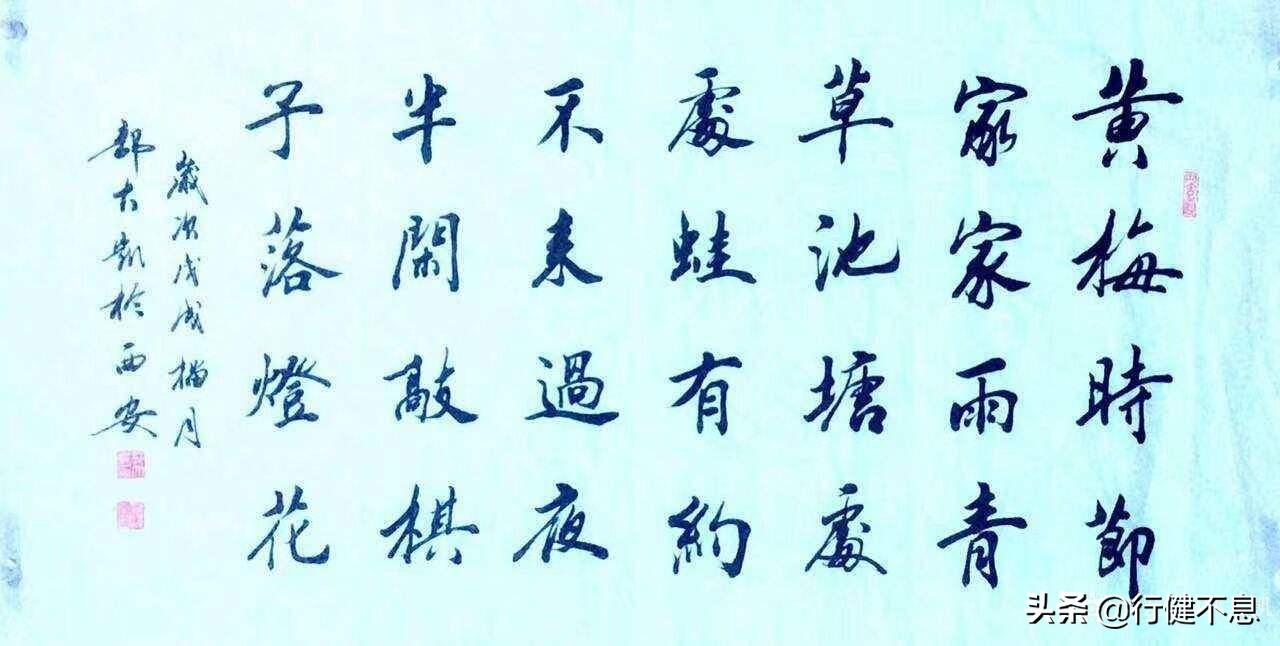 黄梅時節
家家雨青
草池塘處
處蛙有約
不来過夜
半閑敲棋
子落燈花
歲次戊戌榴月
大凱於西安
头条 @行健不息